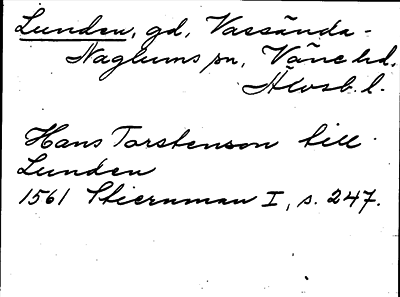 Lunden, gd, Vassända-
Naglums sn, Väne hd.
Älvsb. l.
Hans Torstenson till
Lunden
1561 Stiernman I, s. 247.